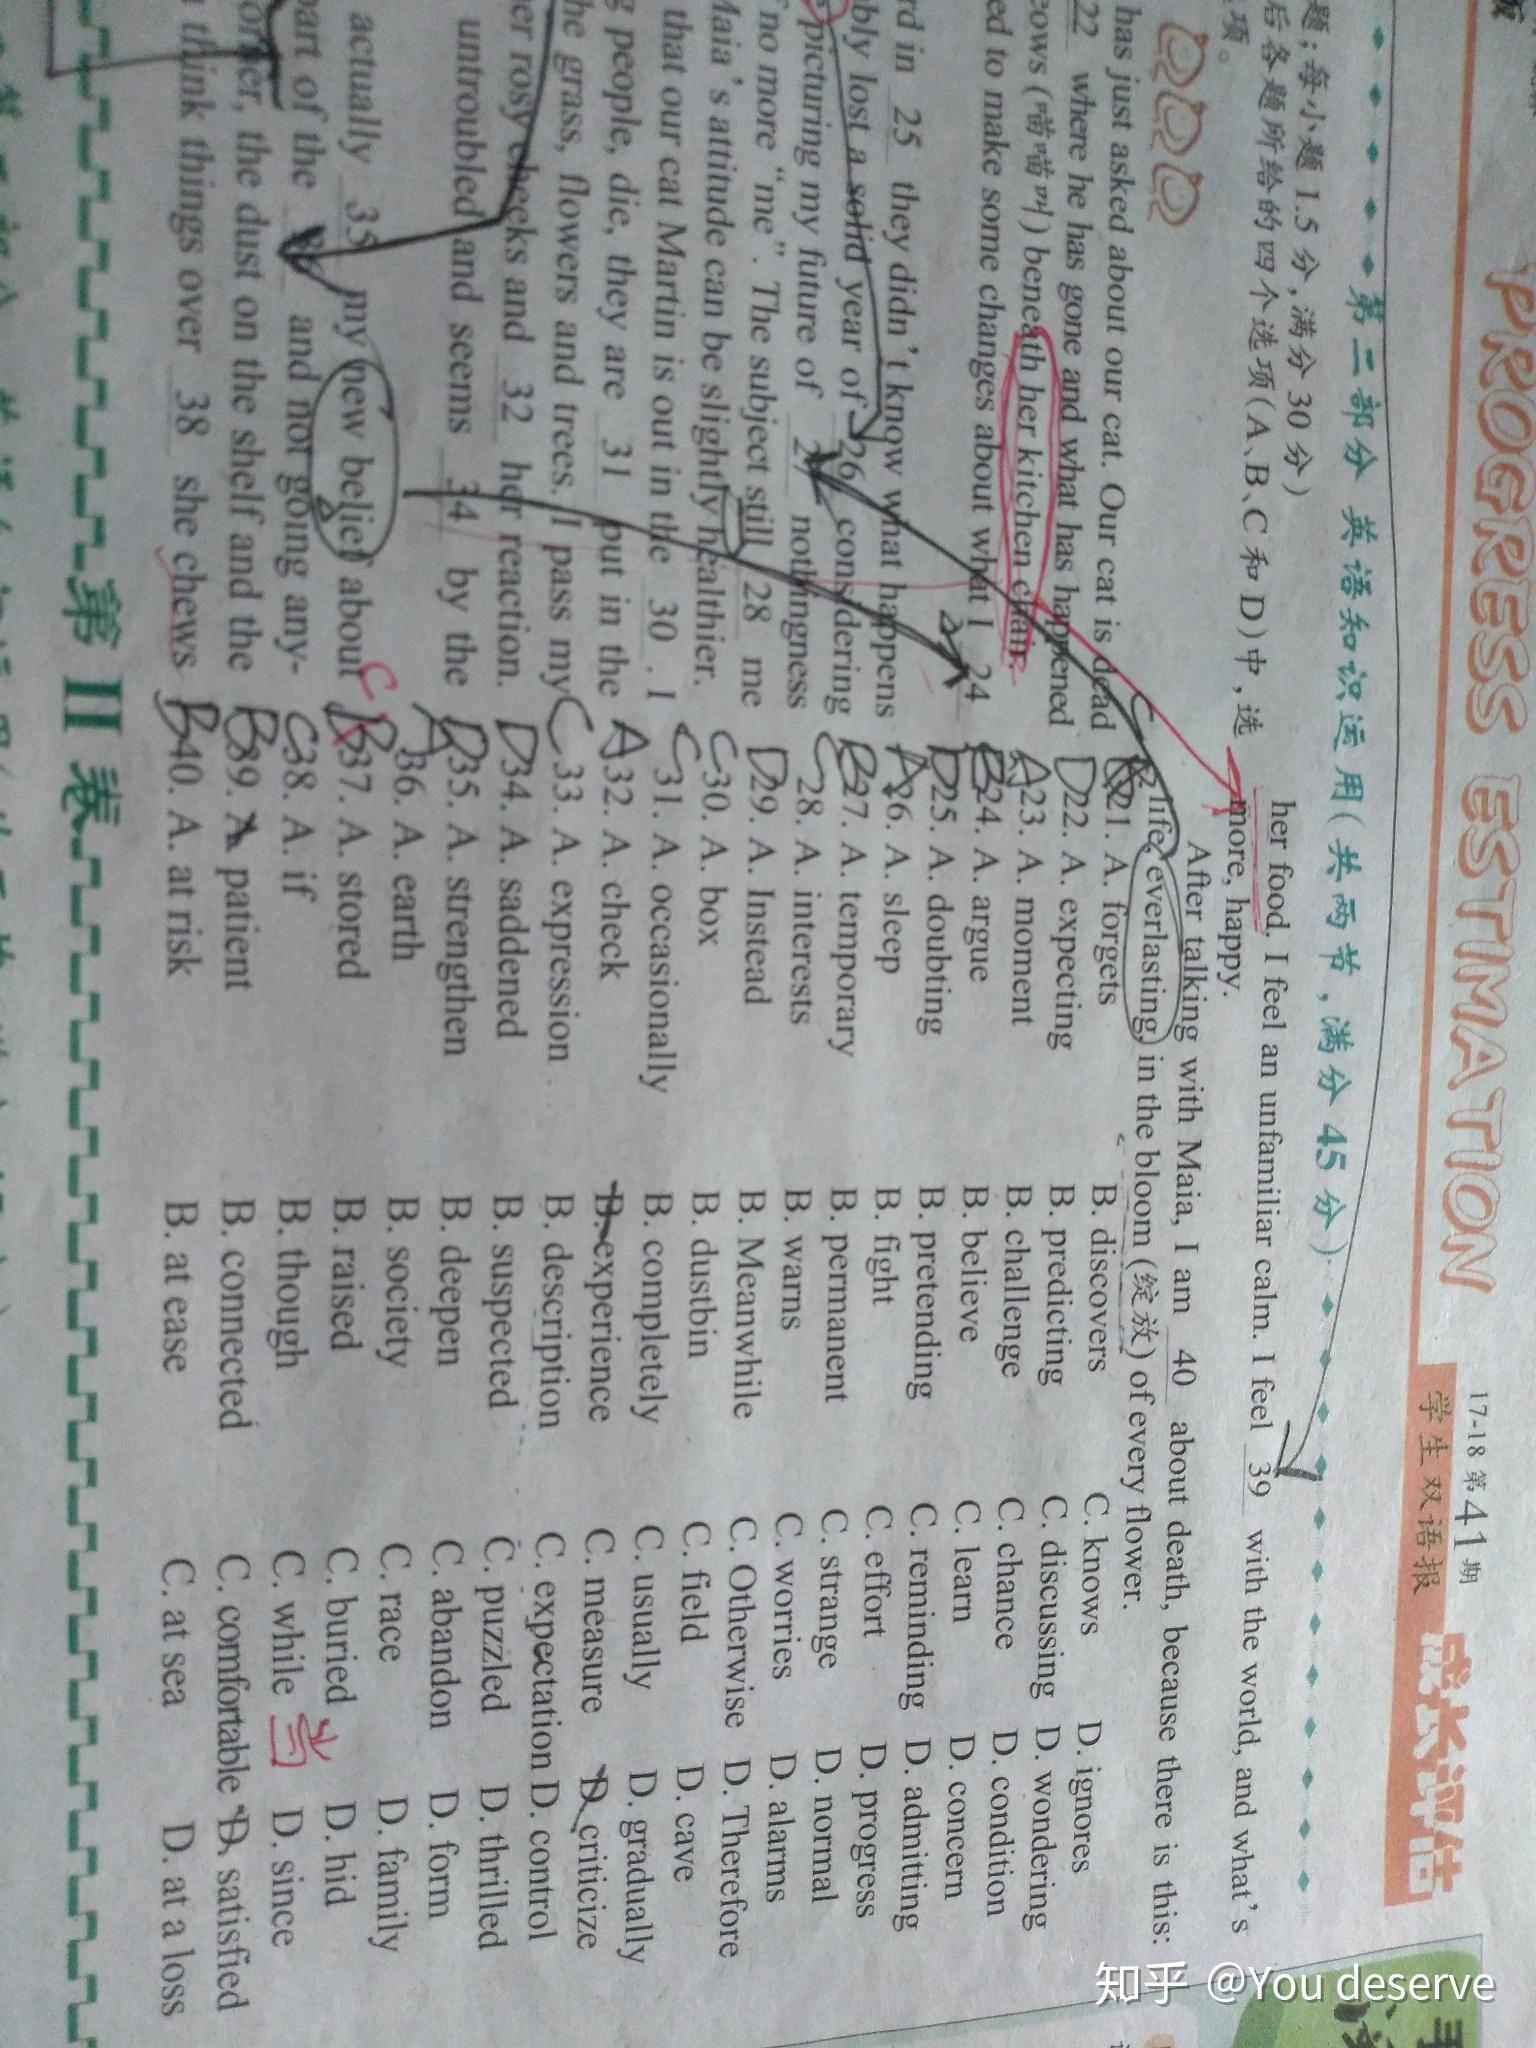 PROGRESS ESTIMATION
17-18 第41期
学生双语报
成长评估
第二部分 英语知识运用(共两节,满分 45 分)
题;每小题 1.5 分,满分 30 分)
后各题所给的四个选项(A、B、C 和 D)中,选
项。
has just asked about our cat. Our cat is dead
22 where he has gone and what has happened
eows (喵喵叫) beneath her kitchen chair.
ed to make some changes about what I 24
rd in 25 they didn't know what happens
ably lost a solid year of 26 considering
picturing my future of 27 nothingness
no more “me”. The subject still 28 me
Maia's attitude can be slightly healthier.
that our cat Martin is out in the 30 . I
g people, die, they are 31 put in the
he grass, flowers and trees. I pass my
her rosy cheeks and 32 her reaction.
untroubled and seems 34 by the
actually 35 my new belief about
part of the and not going any-
orner, the dust on the shelf and the
think things over 38 she chews
her food, I feel an unfamiliar calm. I feel 39 with the world, and what's
more, happy.
After talking with Maia, I am 40 about death, because there is this:
life, everlasting, in the bloom (绽放) of every flower.
21. A. forgets B. discovers C. knows D. ignores
22. A. expecting B. predicting C. discussing D. wondering
23. A. moment B. challenge C. chance D. condition
24. A. argue B. believe C. learn D. concern
25. A. doubting B. pretending C. reminding D. admitting
26. A. sleep B. fight C. effort D. progress
27. A. temporary B. permanent C. strange D. normal
28. A. interests B. warns C. worries D. alarms
29. A. Instead B. Meanwhile C. Otherwise D. Therefore
30. A. box B. dustbin C. field D. cave
31. A. occasionally B. completely C. usually D. gradually
32. A. check B. experience C. measure D. criticize
33. A. expression B. description C. expectation D. control
34. A. saddened B. suspected C. puzzled D. thrilled
35. A. strengthen B. deepen C. abandon D. form
36. A. earth B. society C. race D. family
37. A. stored B. raised C. buried D. hid
38. A. if B. though C. while 当 D. since
39. A. patient B. connected C. comfortable D. satisfied
40. A. at risk B. at ease C. at sea D. at a loss
第 II 卷
知乎 @You deserve